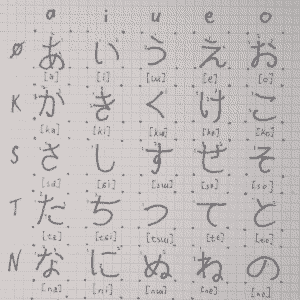 a i u e o
Ø あ い う え お
[a] [i] [ɯ] [e] [o]
K か き く け こ
[ka] [ki] [kɯ] [ke] [ko]
S さ し す せ そ
[sa] [ɕi] [sɯ] [se] [so]
T た ち つ て と
[ta] [tɕi] [tsɯ] [te] [to]
N な に ぬ ね の
[na] [ni] [nɯ] [ne] [no]